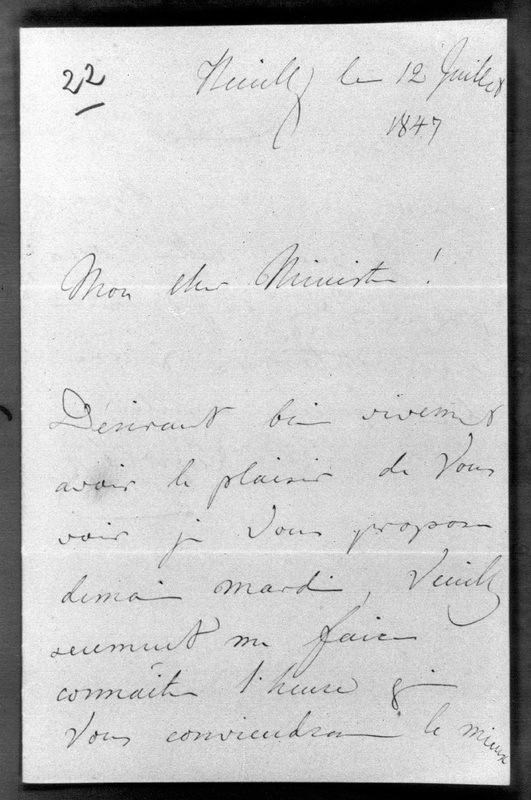 22
Neuilly le 12 Juillet
1847
Mon cher Ministre !
Désirant bien vivement
avoir le plaisir de Vous
voir je Vous propose
demain mardi, Veuillez
seulement me faire
connaître l'heure qui
Vous conviendra le mieux